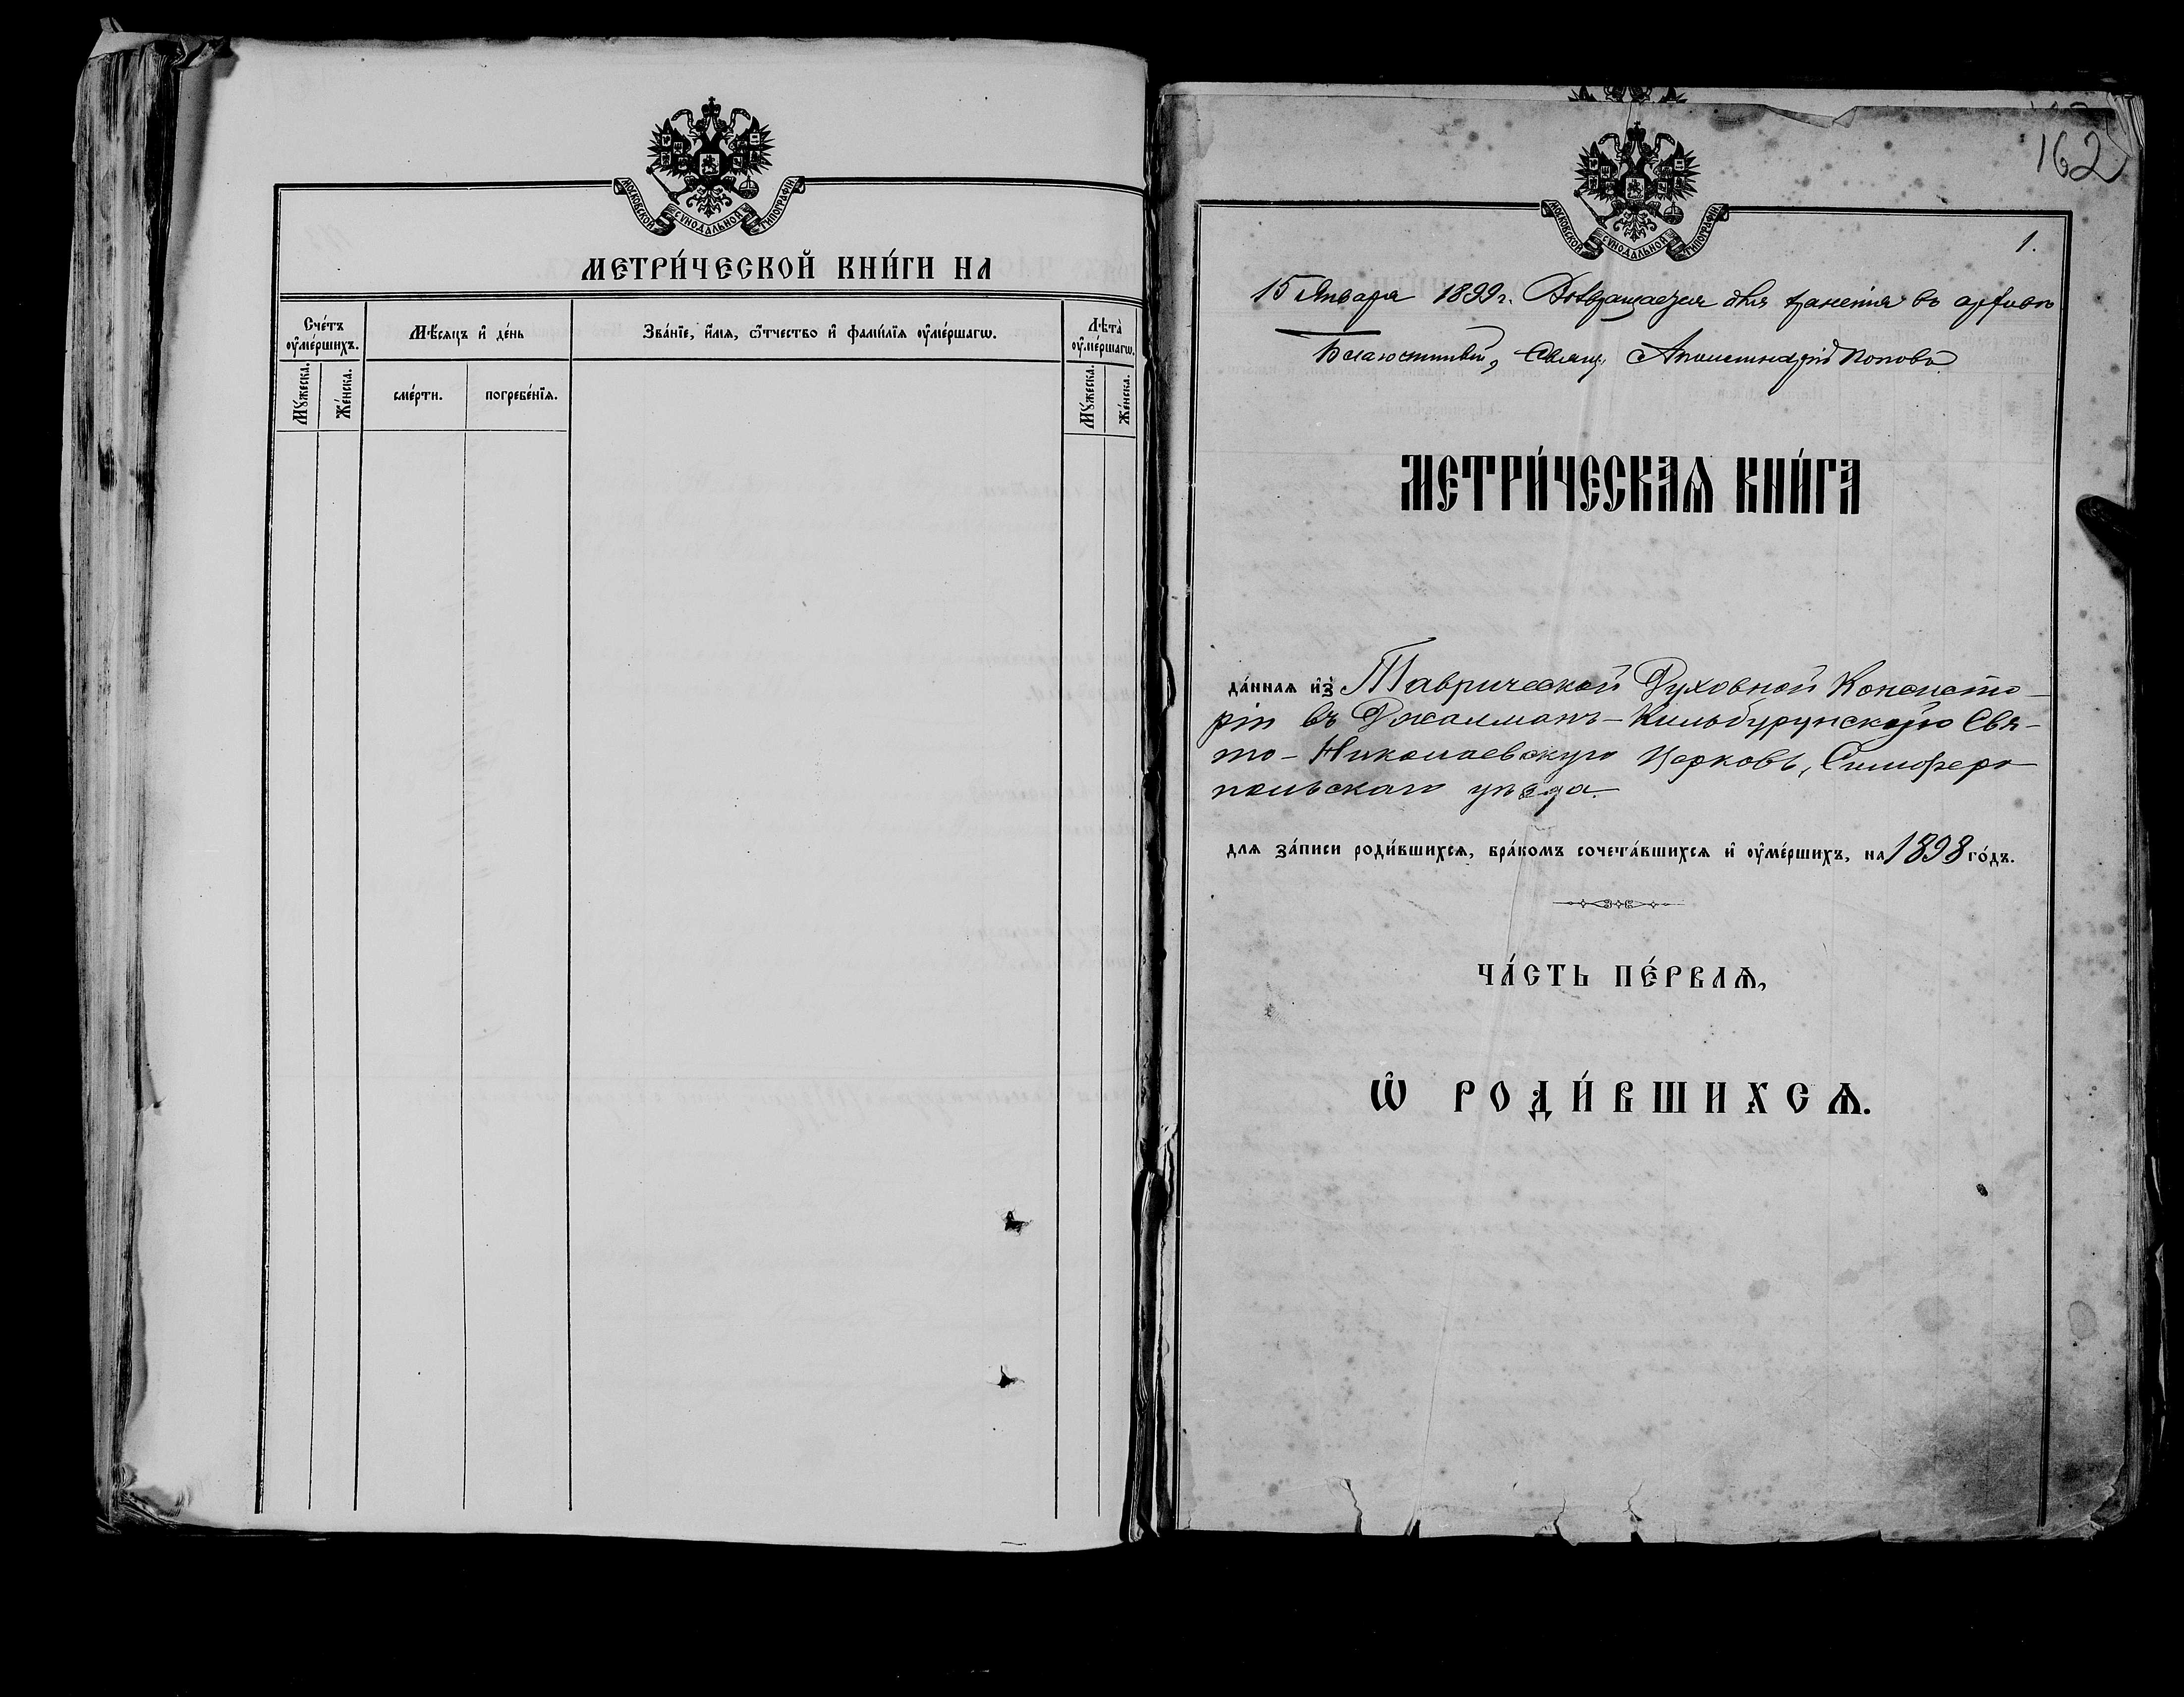 МОСКОВСКОЙ СѴНОДАЛЬНОЙ ТИПОГРАФІИ
МЕТРИ́ЧЕСКОЙ КНИ́ГИ НА
Сче́тъ ᲂу҆ме́ршихъ.
Мѣ́сяцъ и҆ де́нь
Зва́нїе, и҆́мѧ, ѻ҆́тчество и҆ фамі́лїѧ ᲂу҆ме́ршагѡ.
Лѣ́та ᲂу҆ме́ршагѡ.
Мꙋ́жеска.
Же́нска.
сме́рти.
погребе́нїѧ.
Мꙋ́жеска.
Же́нска.
162
МОСКОВСКОЙ СѴНОДАЛЬНОЙ ТИПОГРАФІИ
1.
15 Января 1899г. Возвращается для храненія въ архивъ
Благочинный, Свящ. Поповъ
МЕТРИ́ЧЕСКАѦ КНИ́ГА
да́ннаѧ и҆з̾ Таврической Духовной Консисто-
ріи въ Джалманъ-Кильбурунскую Свя-
то-Николаевскую Церковь, Симферо
польскаго уѣзда.
длѧ за́писи роди́вшихсѧ, бра́комъ сочета́вшихсѧ и҆ ᲂу҆ме́ршихъ, на 1898 го́дъ.
ЧА́СТЬ ПЕ́РВАѦ,
Ѡ҆ РОДИ́ВШИХСѦ.